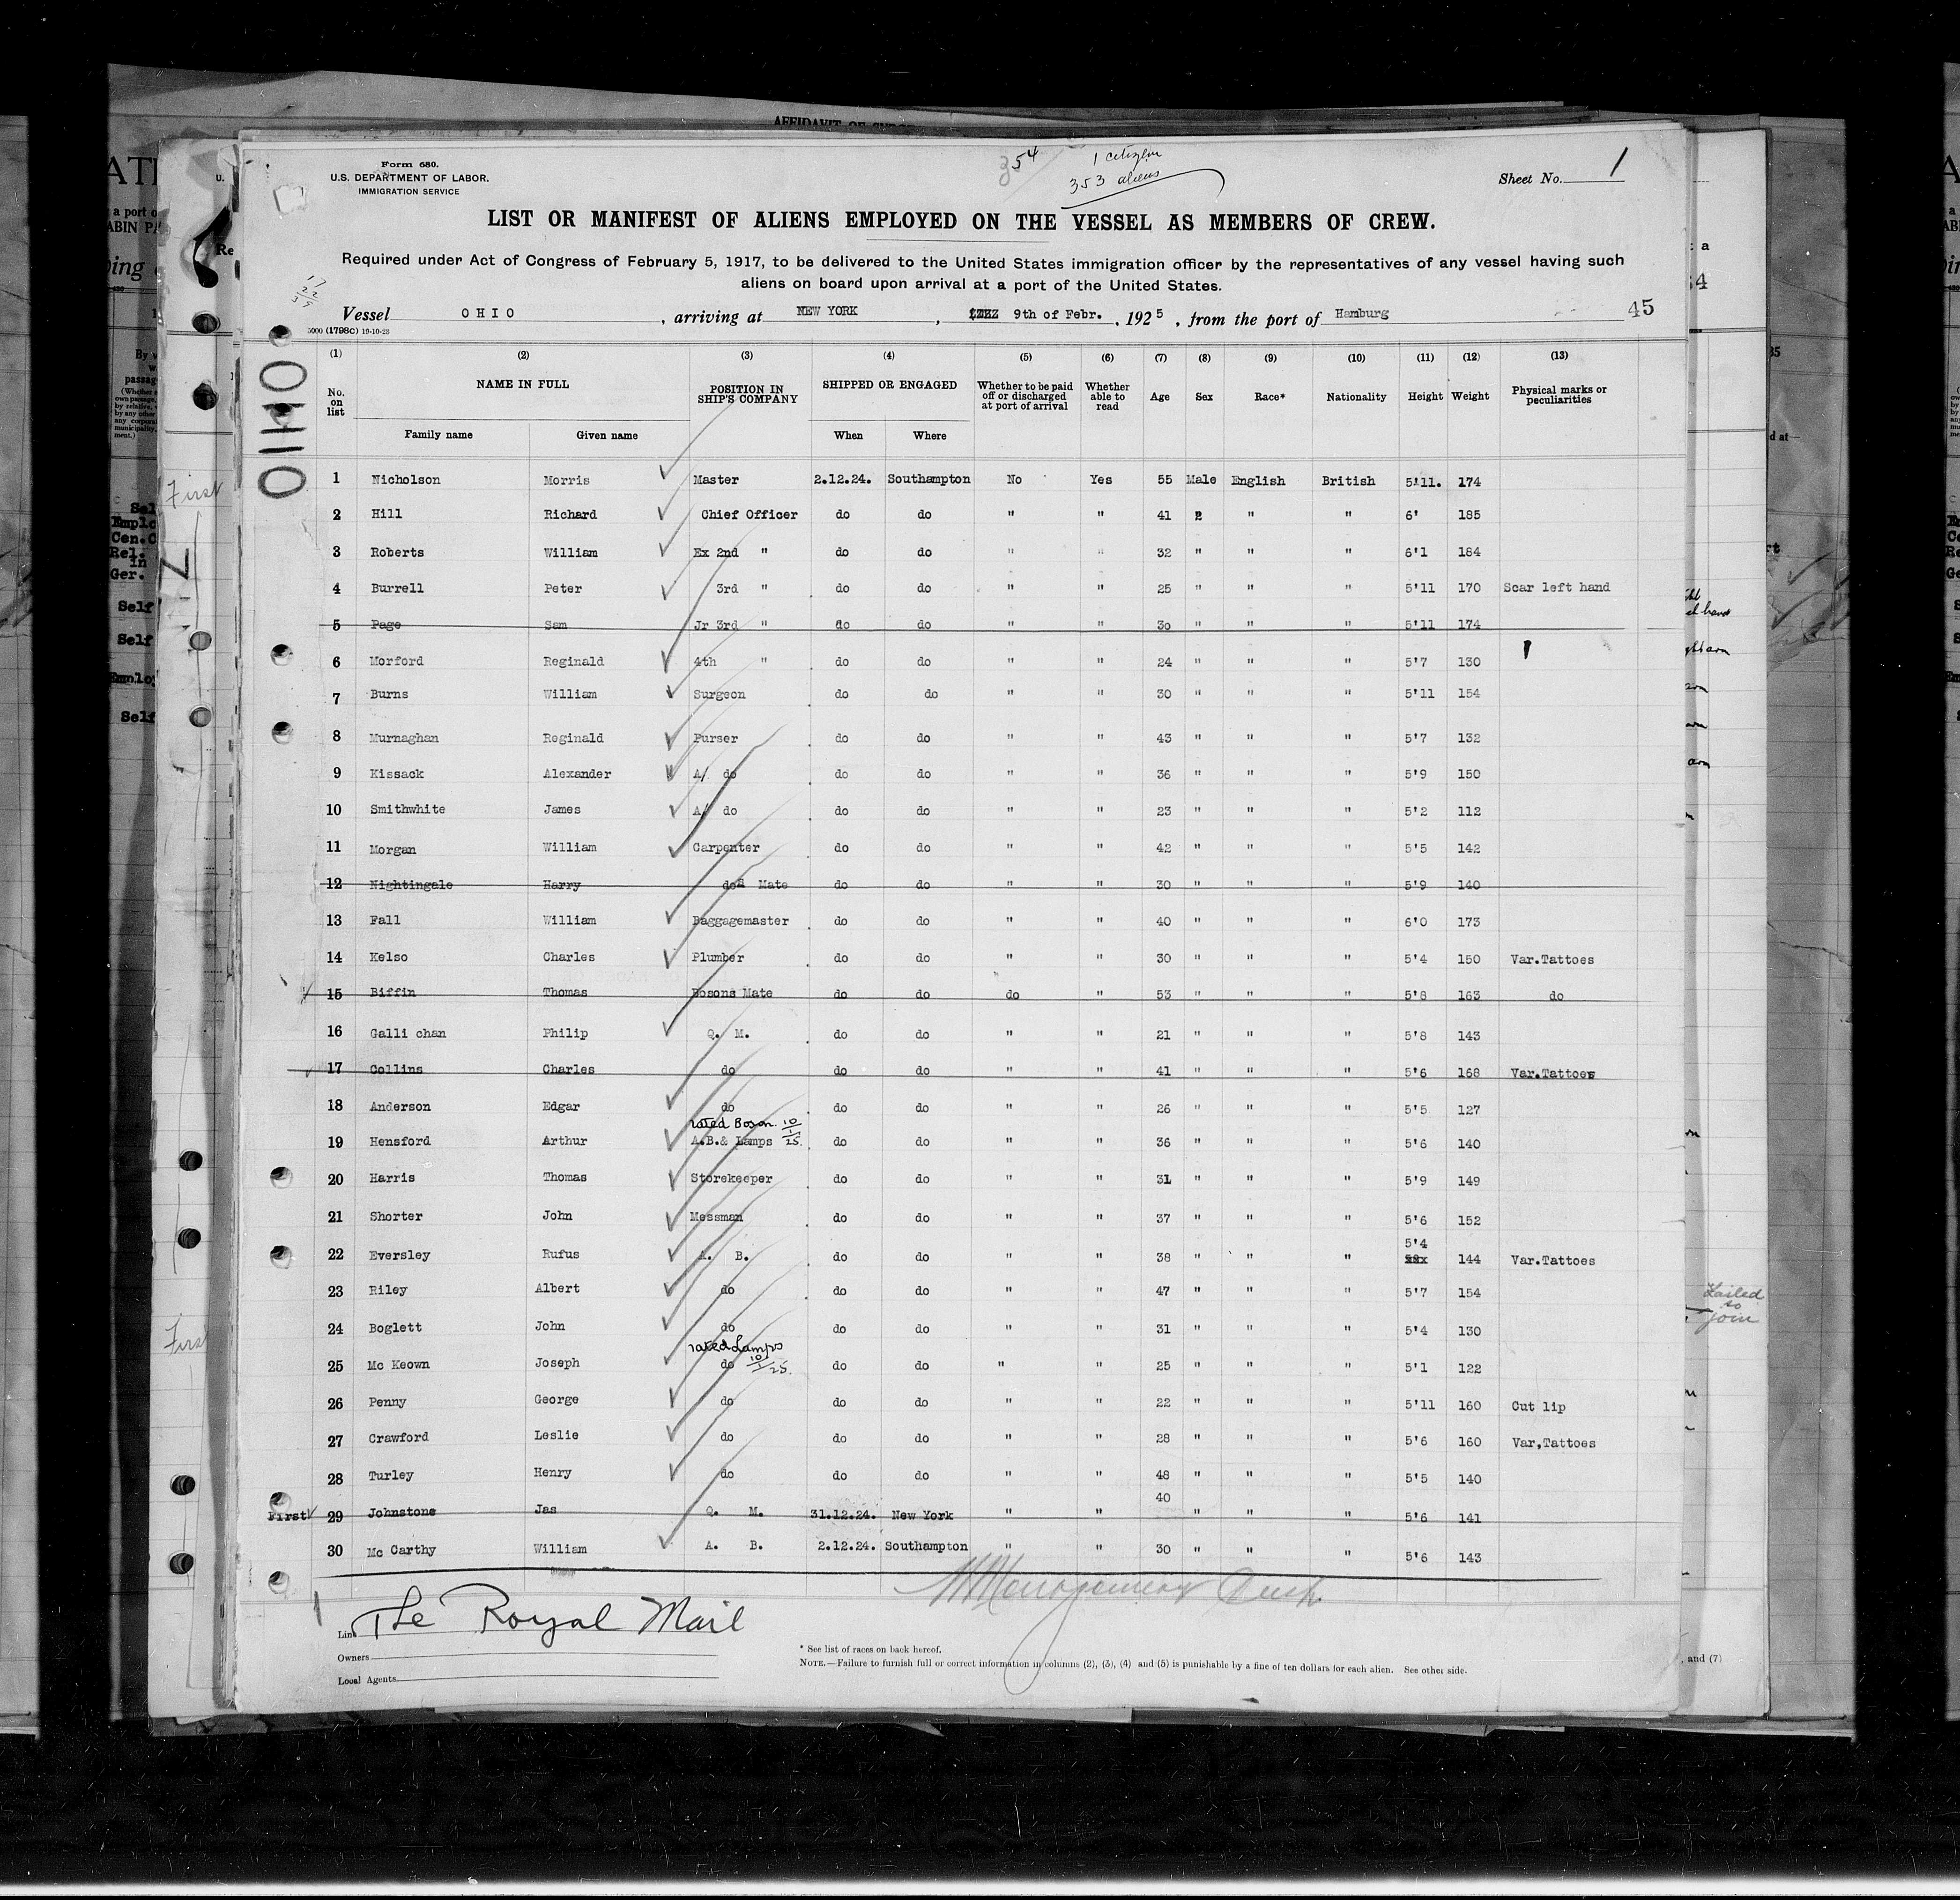 AFFIDAVIT OF
Form 680.
U.S. DEPARTMENT OF LABOR.
IMMIGRATION SERVICE
354
1 citizen
353 aliens
Sheet No. 1
LIST OR MANIFEST OF ALIENS EMPLOYED ON THE VESSEL AS MEMBERS OF CREW.
Required under Act of Congress of February 5, 1917, to be delivered to the United States immigration officer by the representatives of any vessel having such
aliens on board upon arrival at a port of the United States.
17
22
39
Vessel OHIO , arriving at NEW YORK , 9th of Febr. , 1925 , from the port of Hamburg 45
5000 (1798c) 19-10-23
OHIO
(1) (2) (3) (4) (5) (6) (7) (8) (9) (10) (11) (12) (13)
No. on list NAME IN FULL POSITION IN SHIP'S COMPANY SHIPPED OR ENGAGED Whether to be paid off or discharged at port of arrival Whether able to read Age Sex Race* Nationality Height Weight Physical marks or peculiarities
Family name Given name When Where
1 Nicholson Morris Master 2.12.24. Southampton No Yes 55 Male English British 5'11. 174
2 Hill Richard Chief Officer do do " " 41 " " 6' 185
3 Roberts William Ex 2nd " do do " " 32 " " " 6'1 184
4 Burrell Peter 3rd " do do " " 25 " " " 5'11 170 Scar left hand
5 Page Sam Jr 3rd " do do " " 30 " " " 5'11 174
6 Morford Reginald 4th " do do " " 24 " " " 5'7 130
7 Burns William Surgeon do do " " 30 " " " 5'11 154
8 Murnaghan Reginald Purser do do " " 43 " " " 5'7 132
9 Kissack Alexander A/ do do do " " 36 " " " 5'9 150
10 Smithwhite James A/ do do do " " 23 " " " 5'2 112
11 Morgan William Carpenter do do " " 42 " " " 5'5 142
12 Nightingale Harry dos Mate do do " " 30 " " " 5'9 140
13 Fall William Baggagemaster do do " " 40 " " " 6'0 173
14 Kelso Charles Plumber do do " " 30 " " " 5'4 150 Var.Tattoes
15 Biffin Thomas Bosons Mate do do do " 53 " " " 5'8 163 do
16 Galli chan Philip Q. M. do do " " 21 " " " 5'8 143
17 Collins Charles do do do " " 41 " " " 5'6 168 Var.Tattoes
18 Anderson Edgar do do do " " 26 " " " 5'5 127
rated Boson. 10/1/25.
19 Hensford Arthur A.B.& Lamps do do " " 36 " " " 5'6 140
20 Harris Thomas Storekeeper do do " " 31 " " " 5'9 149
21 Shorter John Messman do do " " 37 " " " 5'6 152
5'4
22 Eversley Rufus A. B. do do " " 38 " " " 144 Var.Tattoes
23 Riley Albert do do do " " 47 " " " 5'7 154
24 Boglett John do do do " " 31 " " " 5'4 130
rated Lamps 10/1/25.
25 Mc Keown Joseph do do do " " 25 " " " 5'1 122
26 Penny George do do do " " 22 " " " 5'11 160 Cut lip
27 Crawford Leslie do do do " " 28 " " " 5'6 160 Var,Tattoes
28 Turley Henry do do do " " 48 " " " 5'5 140
First 29 Johnstone Jas Q. M. 31.12.24. New York " " 40 " " " 5'6 141
30 Mc Carthy William A. B. 2.12.24. Southampton " " 30 " " " 5'6 143
Line The Royal Mail
Owners
Local Agents
* See list of races on back hereof.
NOTE.—Failure to furnish full or correct information in columns (2), (3), (4) and (5) is punishable by a fine of ten dollars for each alien. See other side.
First
First
Failed
to
join
, and (7)